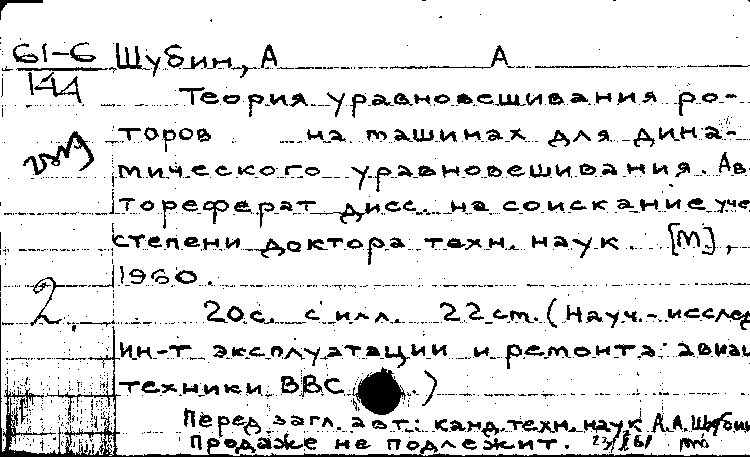 61-6 Шубин, А А
144
Теория уравновешивания ро-
торов на машинах для дина-
мического уравновешивания. Ав
тореферат дисс. на соискание уче
степени доктора техн. наук. [М],
1960.
2. 20с. с илл. 22 ст. (Науч.-исслед
ин-т эксплуатации и ремонта авиац
техники ВВС .)
Перед загл. авт.: канд. техн. наук А.А. Шубин
Продаже не подлежит.